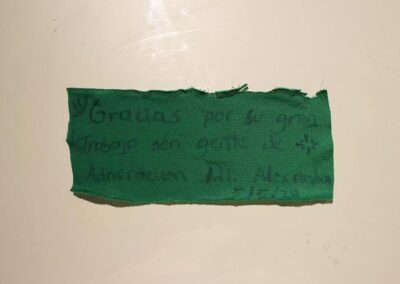 Gracias por su gran
Trabajo son gente de
Admiracion Att: Alexandra
5/5/24